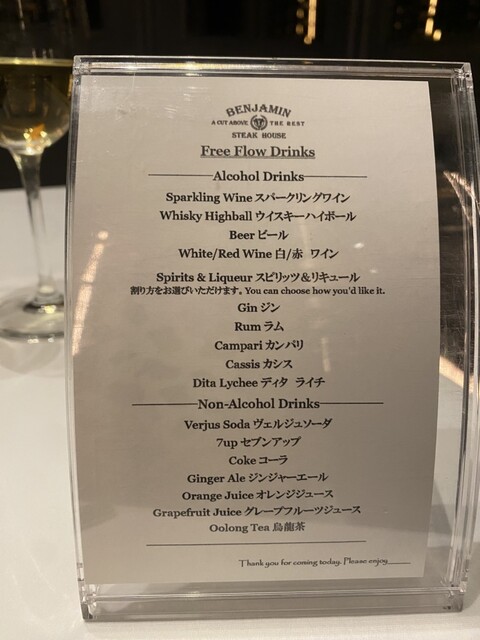 BENJAMIN
A CUT ABOVE THE BEST
STEAK HOUSE
Free Flow Drinks
Alcohol Drinks
Sparkling Wine スパークリングワイン
Whisky Highball ウイスキーハイボール
Beer ビール
White/Red Wine 白/赤 ワイン
Spirits & Liqueur スピリッツ&リキュール
割り方をお選びいただけます。You can choose how you'd like it.
Gin ジン
Rum ラム
Campari カンパリ
Cassis カシス
Dita Lychee ディタ ライチ
Non-Alcohol Drinks
Verjus Soda ヴェルジュソーダ
7up セブンアップ
Coke コーラ
Ginger Ale ジンジャーエール
Orange Juice オレンジジュース
Grapefruit Juice グレープフルーツジュース
Oolong Tea 烏龍茶
Thank you for coming today. Please enjoy____